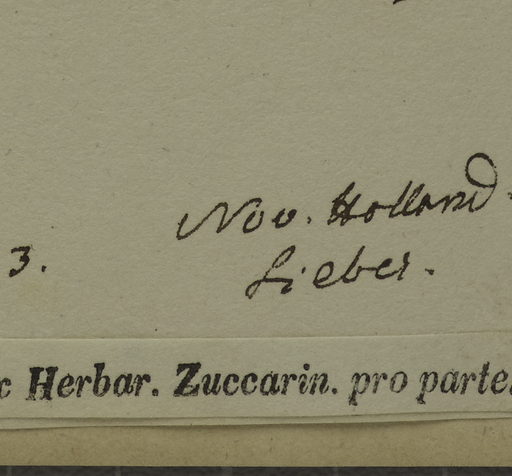 Nov. Holland.
3.
Sieber.
c Herbar. Zuccarin. pro parte.